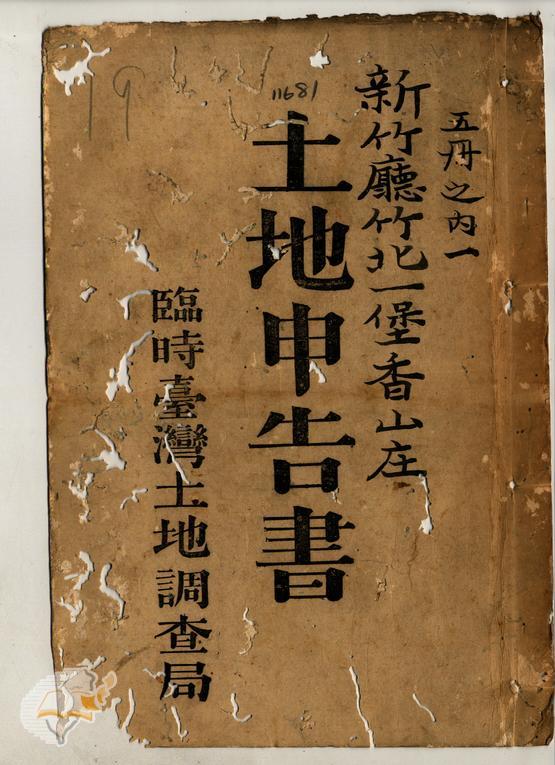 五冊之內一
新竹廳竹北一堡香山庄
11681
土地申告書
臨時臺灣土地調查局
19